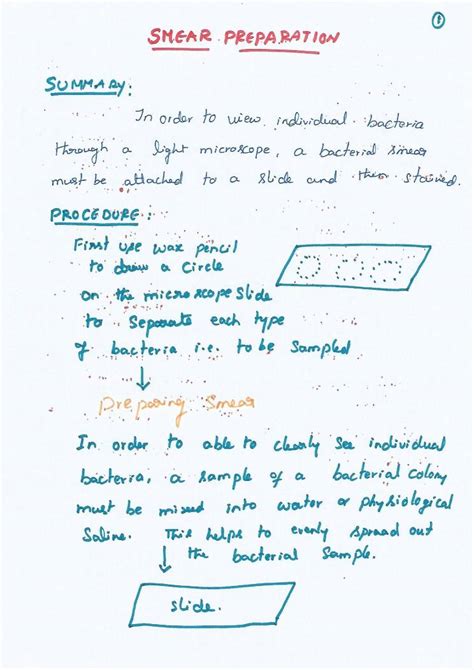 ①
SMEAR PREPARATION
SUMMARY:
In order to view individual bacteria
through a light microscope, a bacterial smear
must be attached to a slide and then stained.
PROCEDURE:
First use wax pencil
to draw a circle
on the microscope slide
to separate each type
of bacteria i.e. to be sampled
Preparing Smear
In order to able to clearly see individual
bacteria, a sample of a bacterial colony
must be mixed into water or physiological
Saline. This helps to evenly spread out
the bacterial sample.
slide.